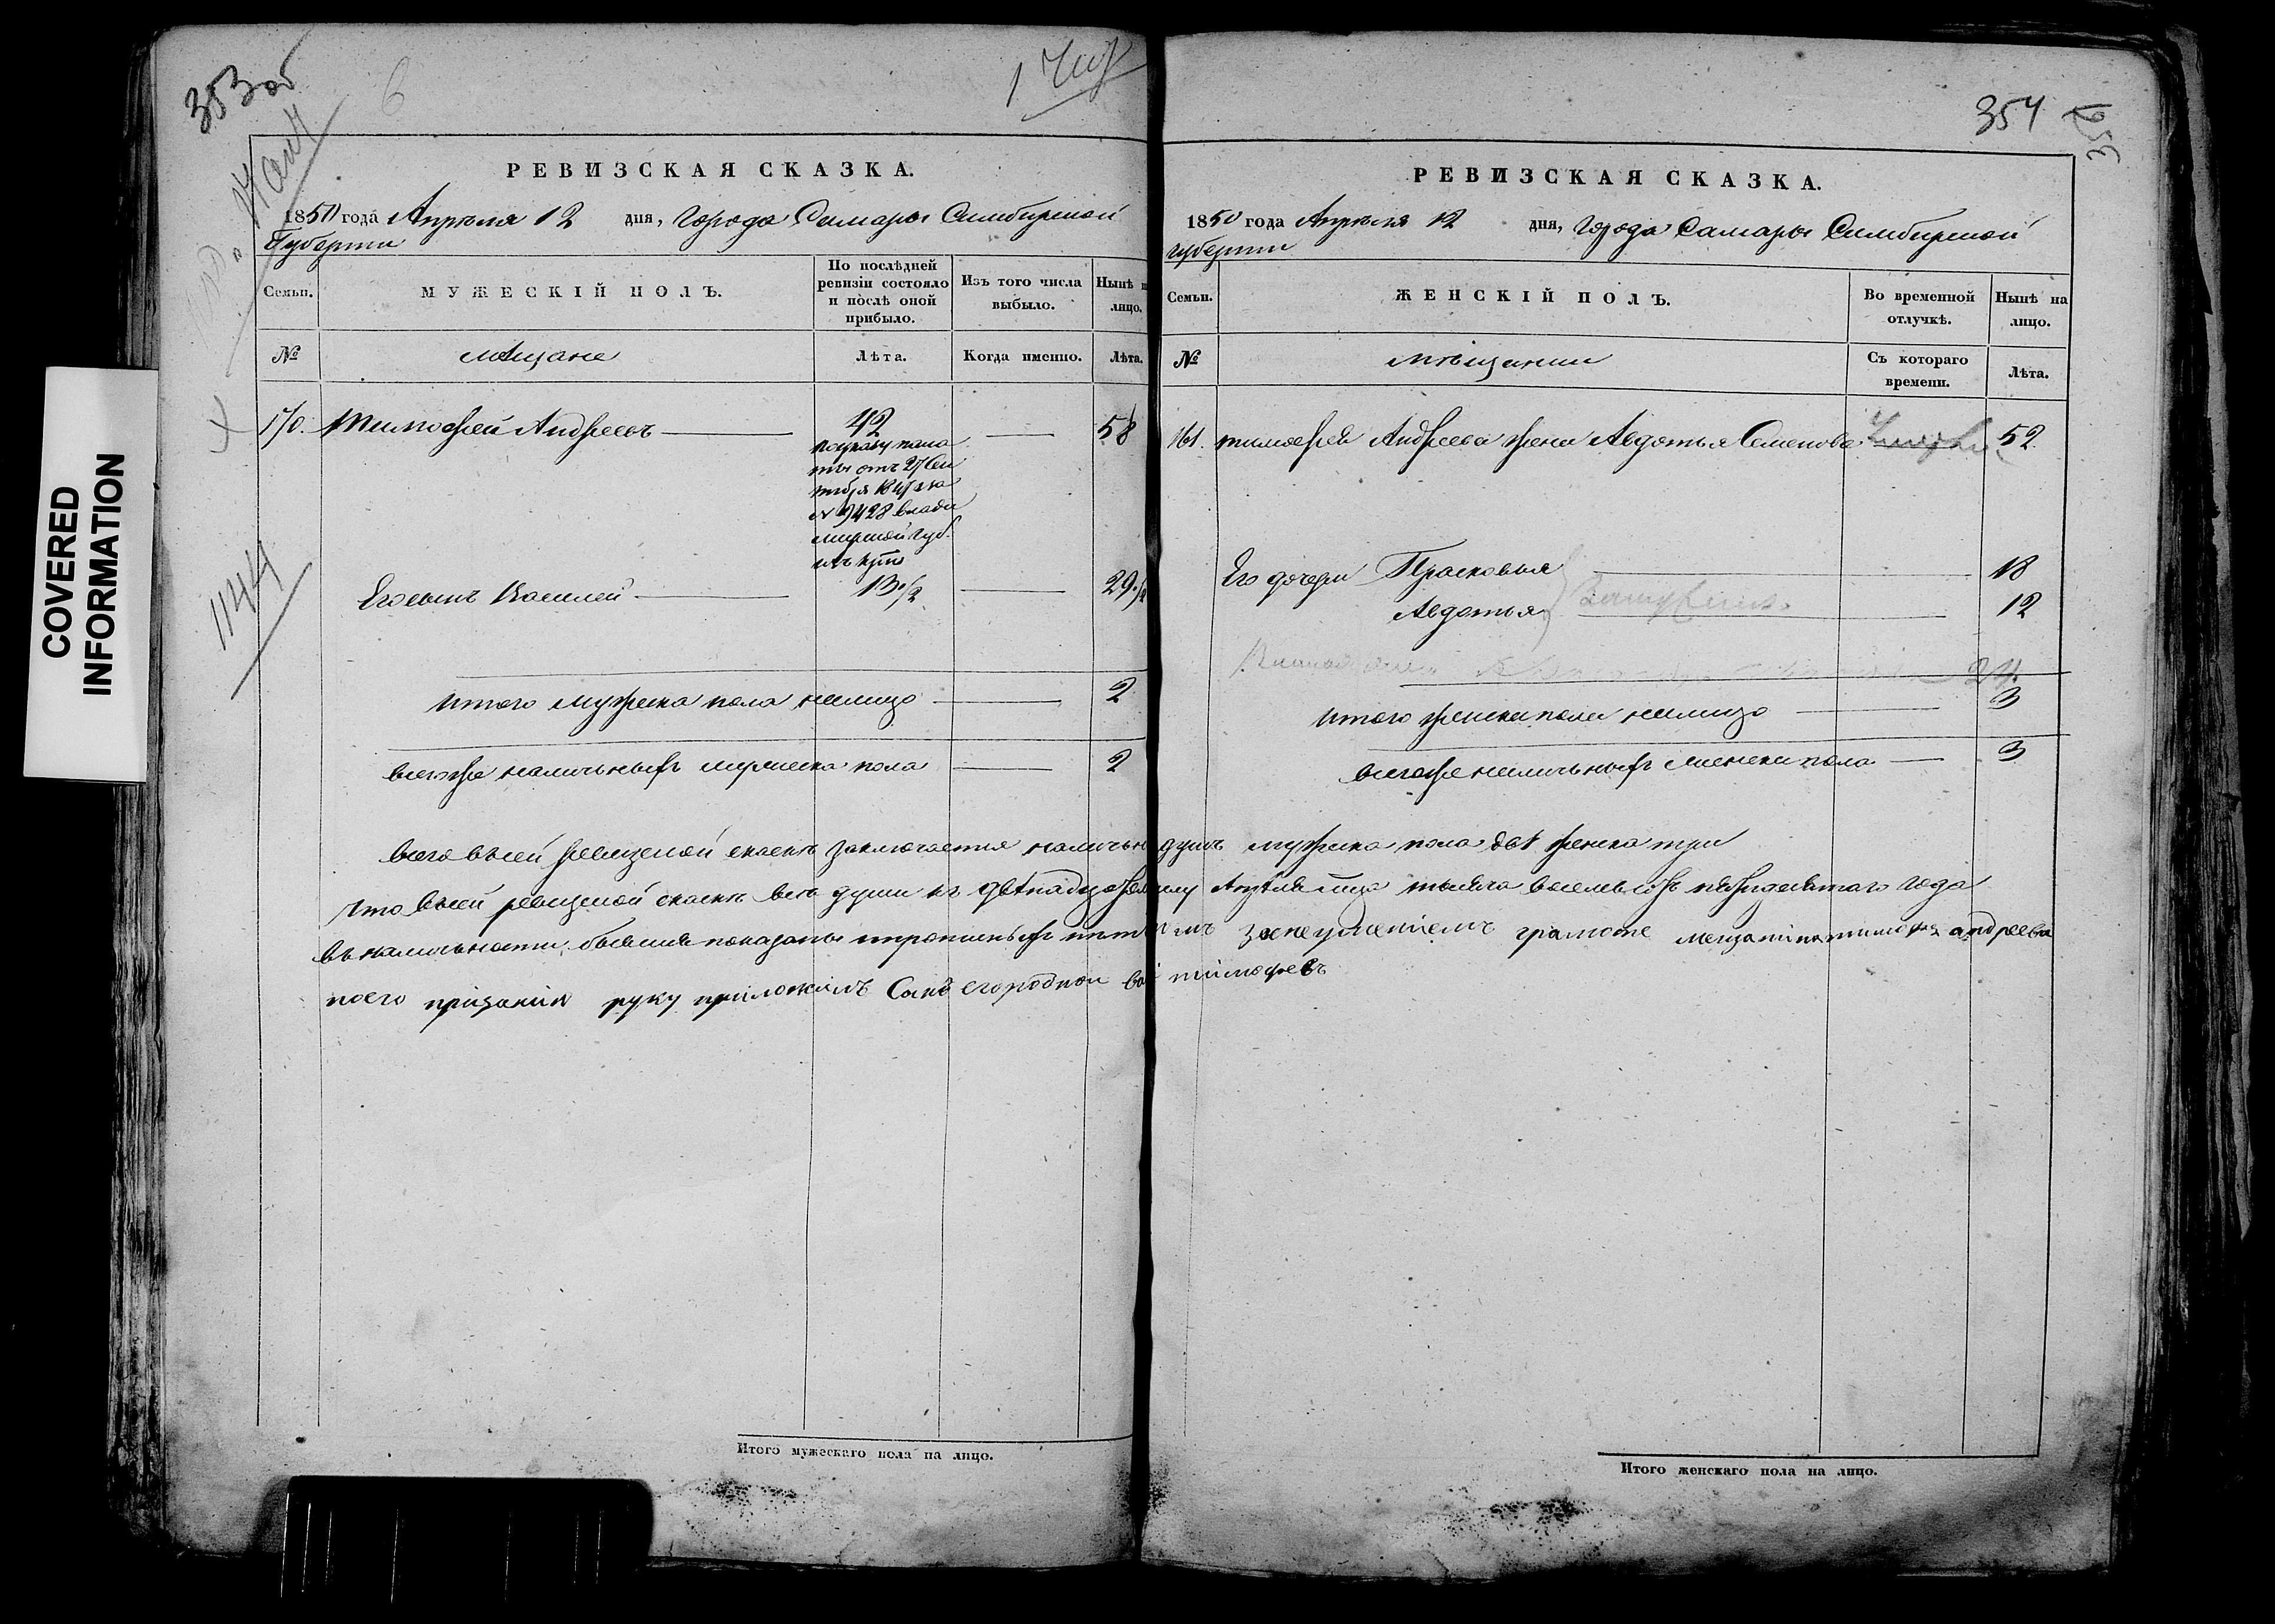 COVERED
INFORMATION
353об
6
1144
РЕВИЗСКАЯ СКАЗКА.
1850 года Апреля 12 дня, города Самары Симбирской
Губернии
Семьи.
МУЖЕСКІЙ ПОЛЪ.
По послѣдней
ревизіи состояло
и послѣ оной
прибыло.
Изъ того числа
выбыло.
Нынѣ н
лицо.
№
мещане
Лѣта.
Когда именно.
Лѣта.
Тимофей Андреевъ
42
58
по указу пала
ты отъ 27 Сен
тября
№ 9428 влади
мирской губ.
Его сынъ Василей
13 1/2
29 1/2
итого мужеска пола налицо 2
всего же наличныхъ мужеска пола 2
354
РЕВИЗСКАЯ СКАЗКА.
1850 года Апреля 12 дня, города Самары Симбирской
губернии
Семьи.
ЖЕНСКІЙ ПОЛЪ.
Во временной
отлучкѣ.
Нынѣ на
лицо.
№
мѣщанки
Съ котораго
времени.
Лѣта.
Тимофея Андреева жена Авдотья Семенова 52
Его дочери Прасковья 18
Авдотья 12
24
итого женска пола налицо 3
всего же наличныхъ женска пола 3
всего в сей ревизской скаске заключается наличныхъ душъ мужеска пола две женска три
что в сей ревизской скаске все души къ двенадцатому Апреля тысяча восемьсотъ пятидесятаго года
в наличности бывшия показаны и прописныхъ нетъ въ томъ за неумениемъ грамоте мещанина тимофея андреева
поего прозанию руку приложилъ Сынъ егородной тимофеевъ
Итого мужескаго пола на лицо.
Итого женскаго пола на лицо.